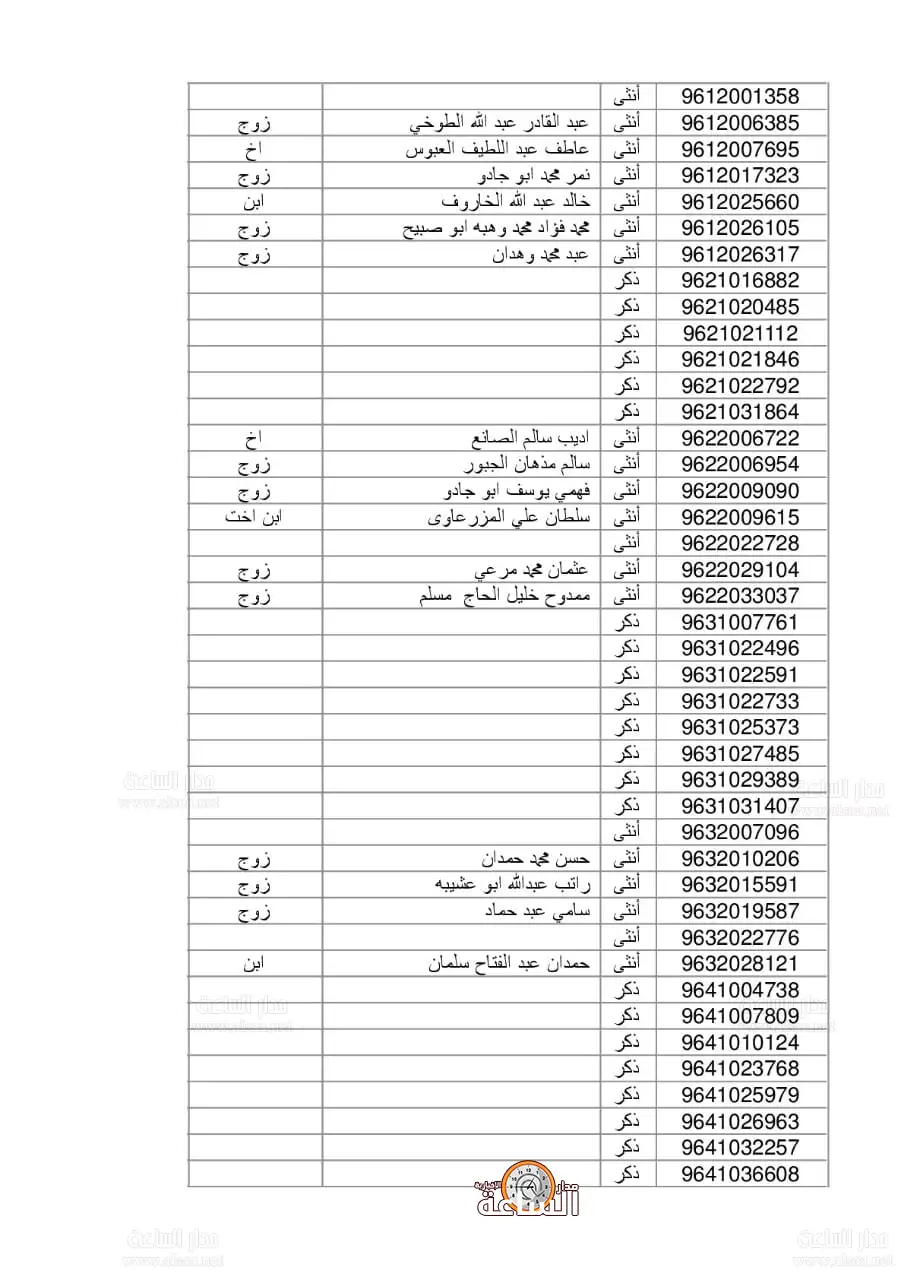 9612001358 أنثى
9612006385 أنثى عبد القادر عبد الله الطوخي زوج
9612007695 أنثى عاطف عبد اللطيف العبوس اخ
9612017323 أنثى نمر محمد ابو جادو زوج
9612025660 أنثى خالد عبد الله الخاروف ابن
9612026105 أنثى محمد فؤاد محمد وهبه ابو صبيح زوج
9612026317 أنثى عبد محمد وهدان زوج
9621016882 ذكر
9621020485 ذكر
9621021112 ذكر
9621021846 ذكر
9621022792 ذكر
9621031864 ذكر
9622006722 أنثى اديب سالم الصانع اخ
9622006954 أنثى سالم مذهان الجبور زوج
9622009090 أنثى فهمي يوسف ابو جادو زوج
9622009615 أنثى سلطان علي المزرعاوى ابن اخت
9622022728 أنثى
9622029104 أنثى عثمان محمد مرعي زوج
9622033037 أنثى ممدوح خليل الحاج مسلم زوج
9631007761 ذكر
9631022496 ذكر
9631022591 ذكر
9631022733 ذكر
9631025373 ذكر
9631027485 ذكر
9631029389 ذكر
9631031407 ذكر
9632007096 أنثى
9632010206 أنثى حسن محمد حمدان زوج
9632015591 أنثى راتب عبدالله ابو عشيبه زوج
9632019587 أنثى سامي عبد حماد زوج
9632022776 أنثى
9632028121 أنثى حمدان عبد الفتاح سلمان ابن
9641004738 ذكر
9641007809 ذكر
9641010124 ذكر
9641023768 ذكر
9641025979 ذكر
9641026963 ذكر
9641032257 ذكر
9641036608 ذكر
مدار الساعة الإخبارية